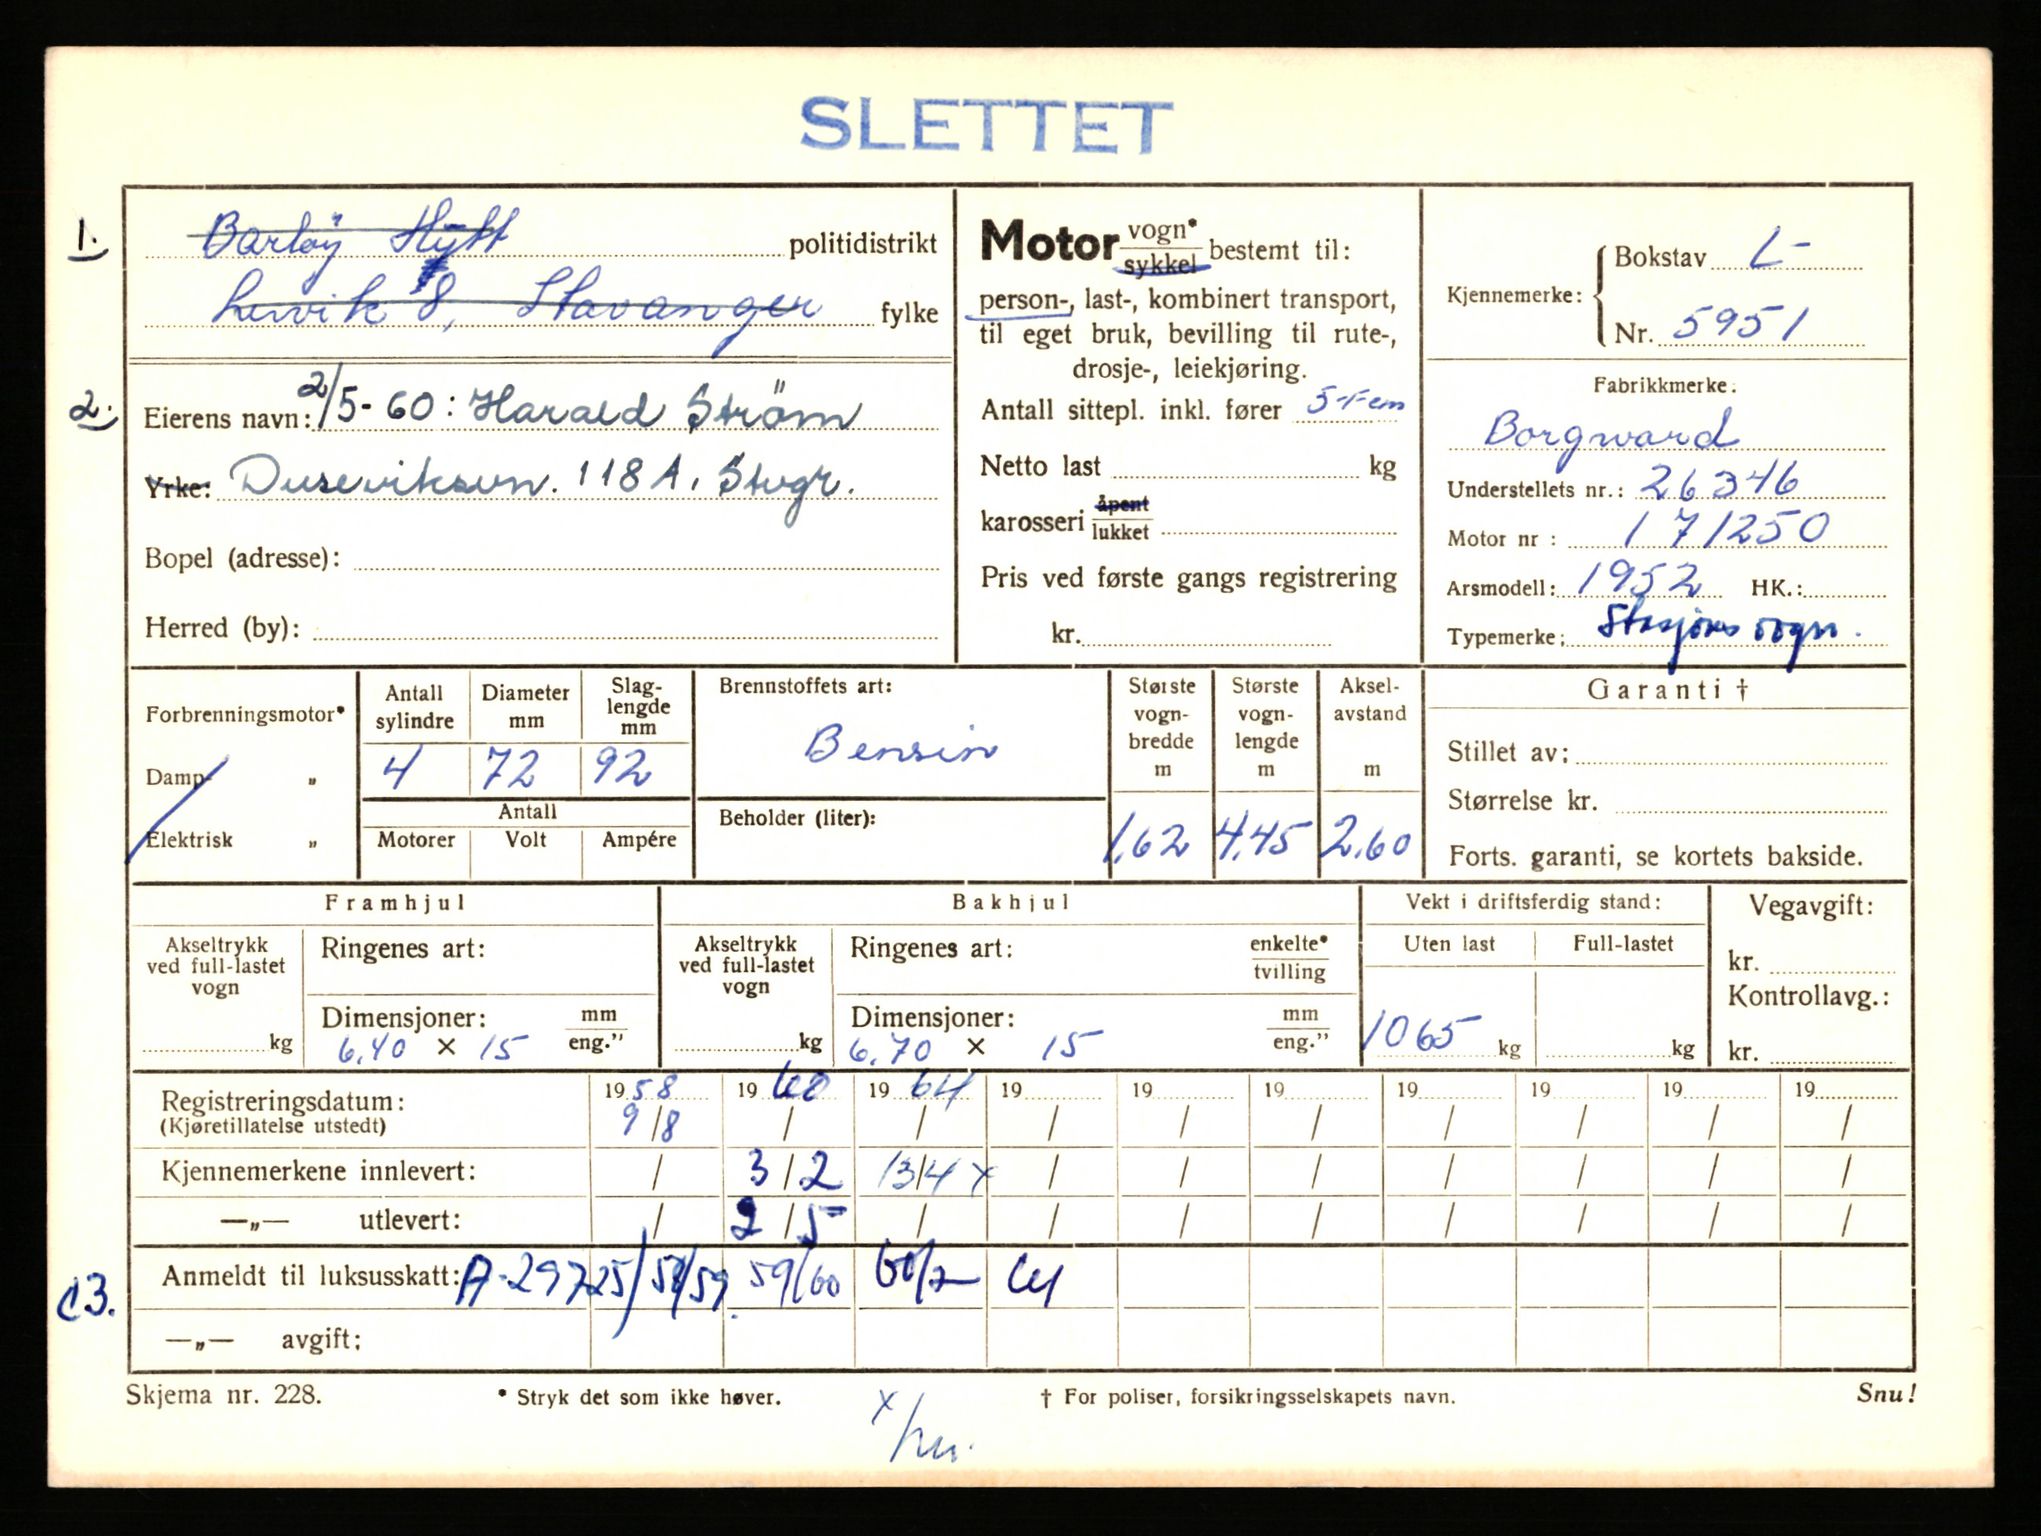 SLETTET
1.
Barløy Hytt politidistrikt
Lervik 8, Stavanger fylke
2.
Eierens navn: 2/5-60: Harald Strøm
Yrke: Duseviksvn. 118 A, Stvgr.
Bopel (adresse):
Herred (by):
Motor vogn* sykkel bestemt til:
person-, last-, kombinert transport,
til eget bruk, bevilling til rute-,
drosje-, leiekjøring.
Antall sittepl. inkl. fører 5-Fem
Netto last kg
karosseri åpent lukket
Pris ved første gangs registrering
kr.
Kjennemerke:
Bokstav L-
Nr. 5951
Fabrikkmerke:
Borgward
Understellets nr.: 26346
Motor nr: 171250
Arsmodell: 1952 HK.:
Typemerke: Stasjonsvogn.
Forbrenningsmotor*
Damp- "
Elektrisk "
Antall sylindre
Diameter mm
Slag-lengde mm
4 72 92
Antall
Motorer Volt Ampére
Brennstoffets art:
Bensin
Beholder (liter):
Største vogn-bredde m
1.62
Største vogn-lengde m
4.45
Aksel-avstand m
2.60
Garanti †
Stillet av:
Størrelse kr.
Forts. garanti, se kortets bakside.
Framhjul
Akseltrykk ved full-lastet vogn
kg
Ringenes art:
Dimensjoner: mm
6.40 × 15 eng."
Bakhjul
Akseltrykk ved full-lastet vogn
kg
Ringenes art: enkelte* tvilling
Dimensjoner: mm
6.70 × 15 eng."
Vekt i driftsferdig stand:
Uten last Full-lastet
1065 kg kg
Vegavgift:
kr.
Kontrollavg.:
kr.
Registreringsdatum: 1958 1960 1964 19 19 19 19 19 19 19
(Kjøretillatelse utstedt) 9/8 / / / / / / / / /
Kjennemerkene innlevert: / 3/2 13/4 x / / / / / / /
—„— utlevert: / 2/5 / / / / / / / /
Anmeldt til luksusskatt: A-29725/58/59 59/60 60/2 61
C3.
—„— avgift:
Skjema nr. 228.
* Stryk det som ikke høver.
† For poliser, forsikringsselskapets navn.
Snu!
x/